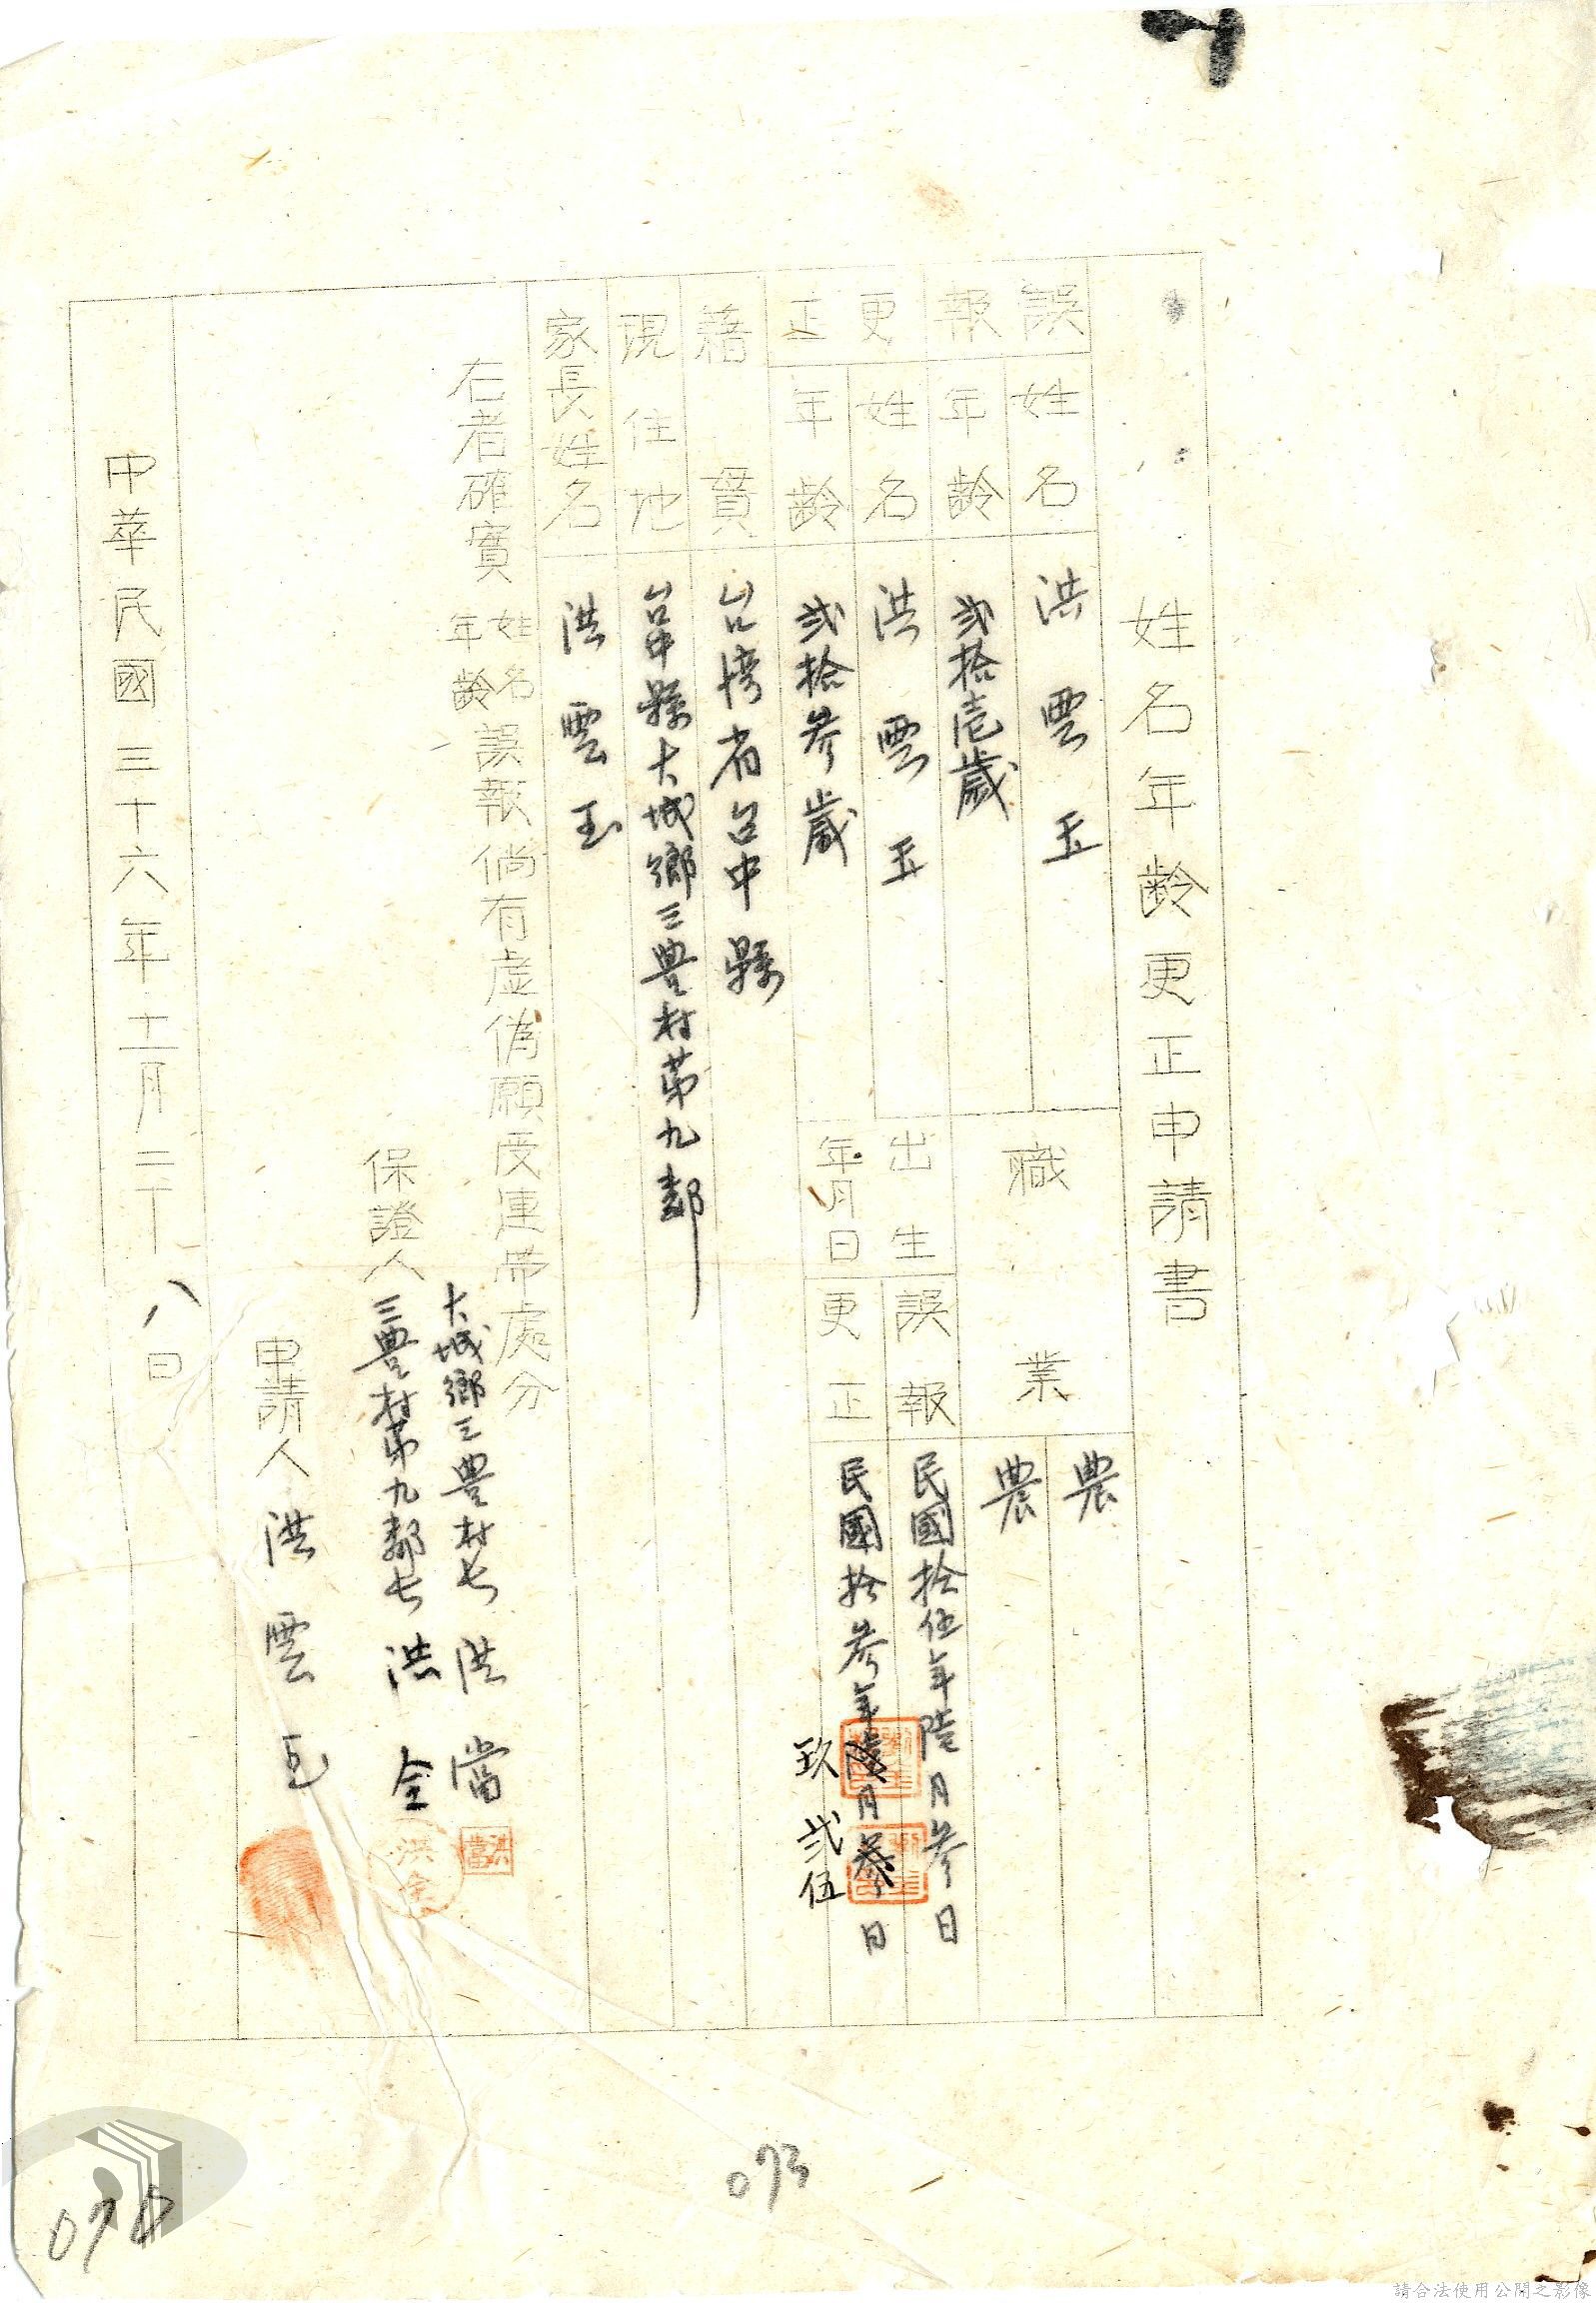 姓名年齡更正申請書
誤報
姓名
洪雲玉
年齡
弍拾壱歲
職業
農
農
更正
姓名
洪雲玉
年齡
弍拾參歲
出生年月日
誤報
民國拾伍年陸月參日
更正
民國拾參年陸月參日
玖
弍伍
籍貫
台灣省台中縣
現住地
台中縣大城鄉三豊村第九鄰
家長姓名
洪雲玉
右者確實姓名年齡誤報倘有虛偽願受連帶處分
保證人
大城鄉三豊村長洪當
洪當
三豊村第九鄰長洪全
洪全
申請人洪雲玉
中華民國三十六年十二月二十八日
073
請合法使用公開之影像